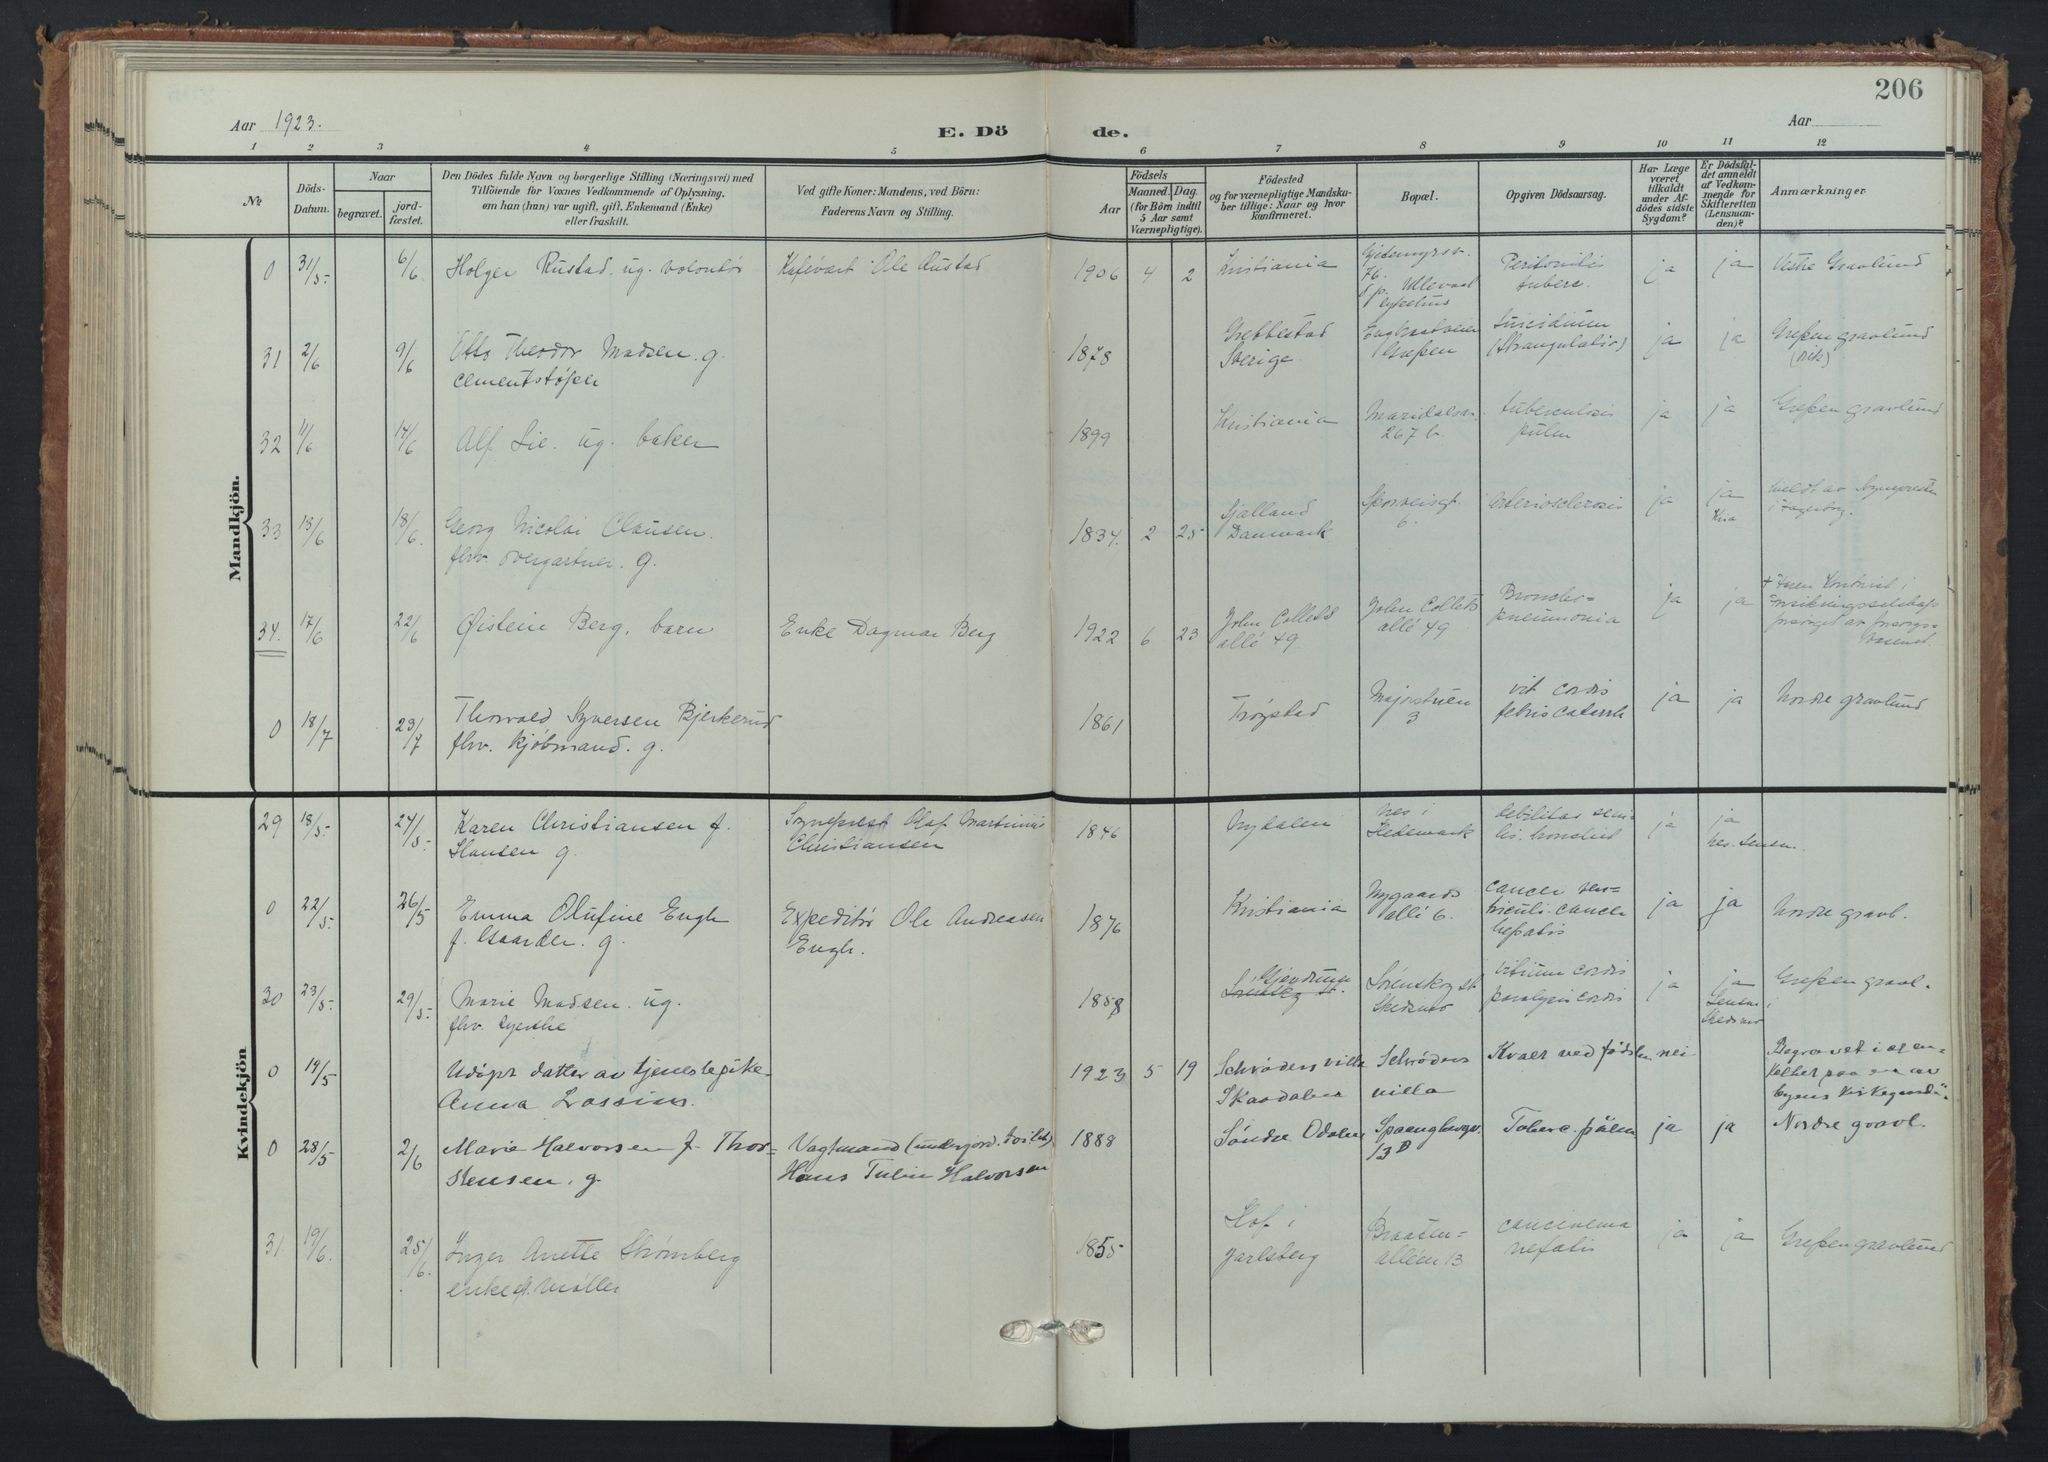 206
Aar 1923.
E. Dö de.
Aar
1 2 3 4 5 6 7 8 9 10 11 12
№
Döds-Datum.
Naar
begravet.
jord-fæstet.
Den Dödes fulde Navn og borgerlige Stilling (Næringsvei) med
Tilföiende for Voxnes Vedkommende af Oplysning,
om han (hun) var ugift, gift, Enkemand (Enke)
eller fraskilt.
Ved gifte Koner: Mandens, ved Börn:
Faderens Navn og Stilling.
Födsels
Aar
Maaned. Dag.
(for Börn indtil
5 Aar samt
Værnepligtige).
Födested
og for værnepligtige Mandska-
ber tillige: Naar og hvor
konfirmeret.
Bopæl.
Opgiven Dödsaarsag.
Har Læge
været
tilkaldt
under Af-
dödes sidste
Sygdom?
Er Dödsfal-
det anmeldt
af Vedkom-
mende for
Skifteretten
(Lensman-
den)?
Anmærkninger
Mandkjön.
0 31/5 6/6 Holger Rustad. ug. volontør Kafévært Ole Rustad 1906 4 2 Kristiania
76. Ullevaal sykehus Peritonitis tuberc. ja ja Vestre Gravlund
31 2/6 9/6 Otto Theodor Madsen. g. 1878 Grebbestad Sverige. Grefsen Suicidium (Strangulatio) ja ja Grefsen gravlund
cementstøper
32 11/6 17/6 Alf Lie. ug. baker 1899 Kristiania Maridalsv. 267 b. tuberculosis pulm ja ja Grefsen gravlund
33 13/6 18/6. Georg Nicolai Clausen. 1834. 2 25 Sjælland Danmark Sporveisgt. 6. Arteriosclerosis ja ja Kria
fhv. overgartner. g.
34. 17/6 22/6 Øistein Berg, barn Enke Dagmar Berg 1922 6 23 John Colletts allé 49 John Colletts allé 49 Broncho-pneumonia ja ja
0 18/7 23/7 Thorvald Syversen Bjerkerud 1861 Trøgstad Majorstuen 3 vit cordis febris catarrh ja ja Nordre gravlund
fhv. kjøbmand. g.
Kvindekjön
29 18/5 24/5 Karen Christiansen f. Sogneprest Olaf Martinius 1846 Nydalen Nes i Hedemark debilitas senilis. ja ja
Hansen g. Christiansen
0 22/5 26/5 Emma Olufine Engh Expeditør Ole Andreasen 1876 Kristiania Nygaards allé 6. cancer ventriculi. cancer hepatis ja ja Nordre gravl.
f. Gaarder. g. Engh.
30 23/5 29/5 Marie Madsen. ug. 1858 Gjerdrum Lørenskog st. Lørenskog st. Skedsmo vitium cordis paralysis cordis ja ja Lensm. i Skedsmo Grefsen gravl.
0 19/5 Udøpt datter av tjenestepike 1923 5 19 Schrøders villa Skaadalen Schrøders villa Kvalt ved fødslen nei
Anna
0 28/5 2/6 Marie Halvorsen f. Thor- Vagtmand (underjord. toilet) 1888 Søndre Odalen Spangbergv. 13 D Toberc. pulm ja ja Nordre gravl.
stensen. g. Hans Tulin Halvorsen
31 19/6. 25/6 Inger Anette Strømberg 1855 Hof i Jarlsberg Braaten-alléen 13 ja ja Grefsen gravlund
enke f. Møller